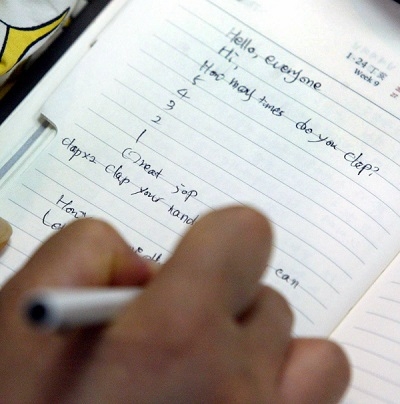 Hello, everyone
Hi,
How many times do you clap?
5
4
3
2
1
Great jop
Clap×2 clap your hand
How
can
1:24
Week 9